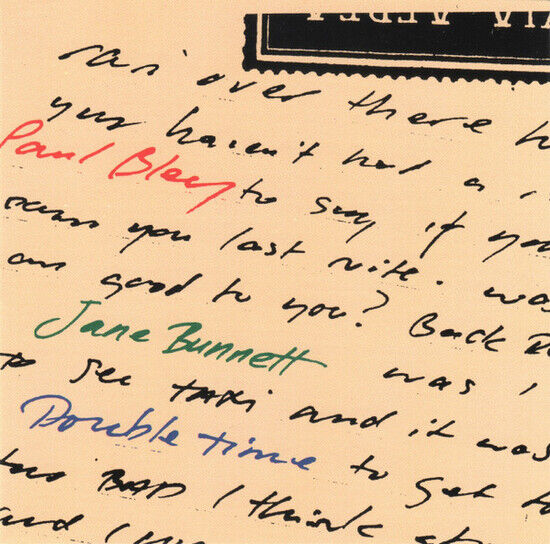 VIA AEREA
over there
you haven't had a
Paul Bley to say if you
you last nite. was
good to you? Back
Jane Bunnett was I
to see TAXI and it was
Double time to get to
too BAD I think
and I